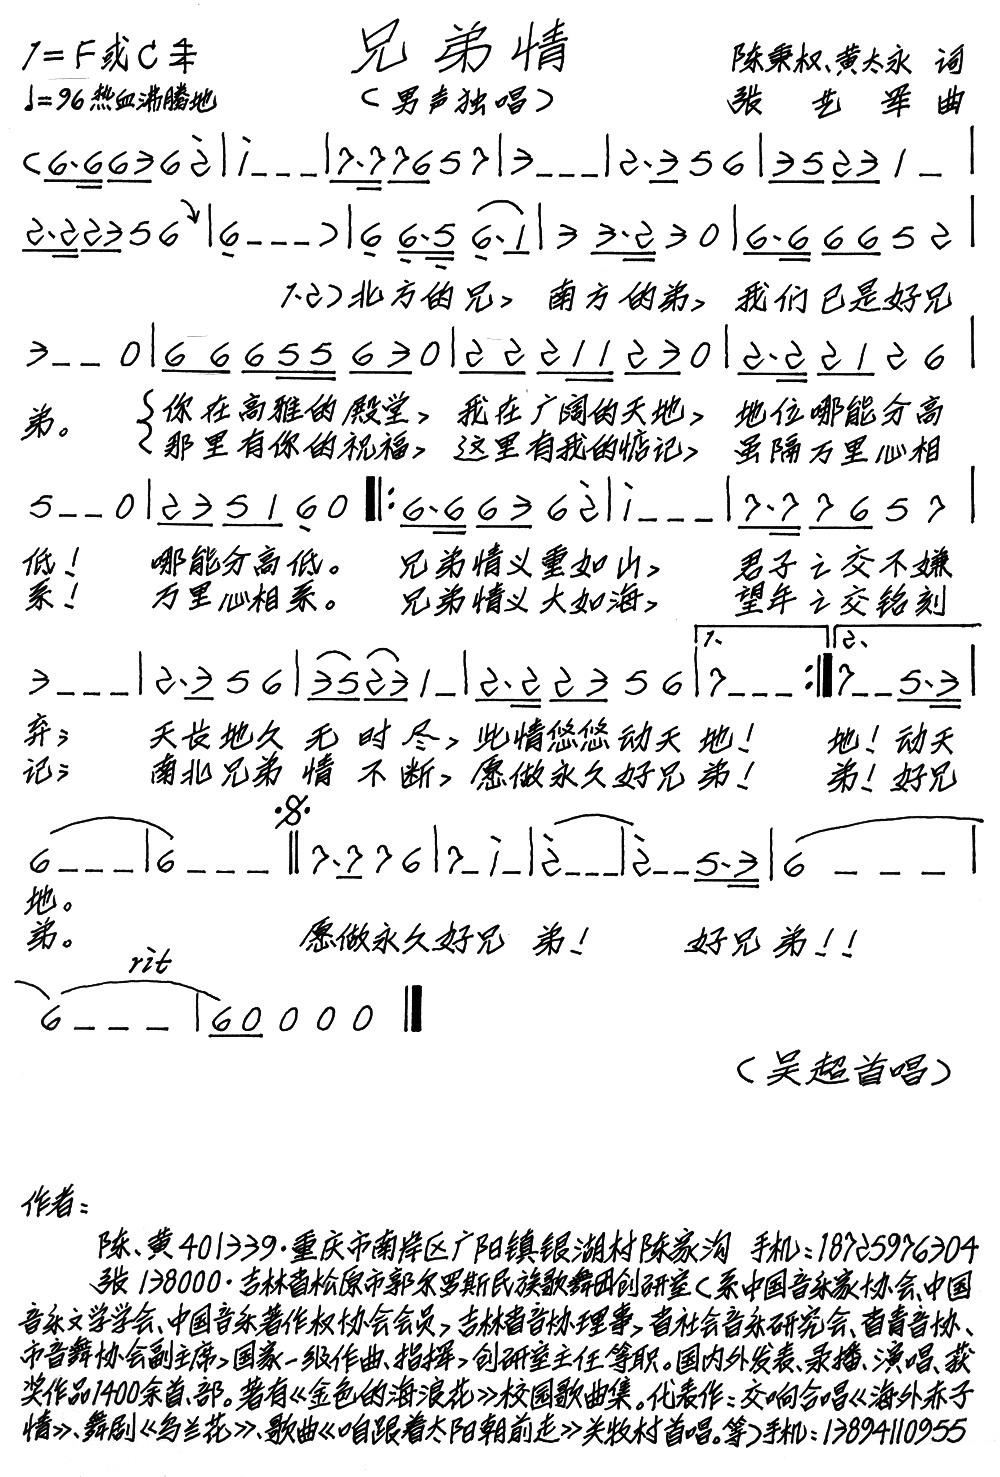 兄弟情
1=F或C 4/4
♩=96 热血沸腾地
(男声独唱)
陈秉权、黄太永 词
张艺军 曲
(6·6 6 3 6 2̇ | 1̇ - - - | 7·7 7 6 5 7 | 3 - - - | 2·3 5 6 | 3 5 2 3 1 - |
2·2 2 3 5 6 | 6 - - -) | 6 6·5 6·1 | 3 3·2 3 0 | 6·6 6 6 5 2 |
1、2)北方的兄, 南方的弟, 我们已是好兄
3 - - 0 | 6 6 6 5 5 6 3 0 | 2 2 2 1 1 2 3 0 | 2·2 2 1 2 6 |
弟。 你在高雅的殿堂, 我在广阔的天地, 地位哪能分高
那里有你的祝福, 这里有我的惦记, 虽隔万里心相
5 - - 0 | 2 3 5 1 6 0 ‖: 6·6 6 3 6 2̇ | 1̇ - - - | 7·7 7 6 5 7 |
低! 哪能分高低。 兄弟情义重如山, 君子之交不嫌
系! 万里心相系。 兄弟情义大如海, 望年之交铭刻
1、 2、
3 - - - | 2·3 5 6 | 3 5 2 3 1 - | 2·2 2 3 5 6 | 7 - - - :‖ 7 - - 5·3 |
弃; 天长地久无时尽, 此情悠悠动天地! 地! 动天
记; 南北兄弟情不断, 愿做永久好兄弟! 弟! 好兄
6 - - - | 6 - - - ‖ 7·7 7 6 | 7 - 1̇ - | 2̇ - - - | 2̇ - - 5·3 | 6 - - - |
地。
弟。 愿做永久好兄弟! 好兄弟!!
rit
6 - - - | 6 0 0 0 0 ‖
(吴超首唱)
作者:
陈、黄401339·重庆市南岸区广阳镇银湖村陈家沟 手机:18725976304
张138000·吉林省松原市郭尔罗斯民族歌舞团创研室(系中国音乐家协会、中国
音乐文学学会、中国音乐著作权协会会员,吉林省音协理事,省社会音乐研究会、省青音协、
市音舞协会副主席,国家一级作曲、指挥,创研室主任等职。国内外发表、录播、演唱、获
奖作品1400余首、部。著有《金色的海浪花》校园歌曲集。代表作:交响合唱《海外赤子
情》、舞剧《乌兰花》、歌曲《咱跟着太阳朝前走》关牧村首唱。等)手机:13894110955